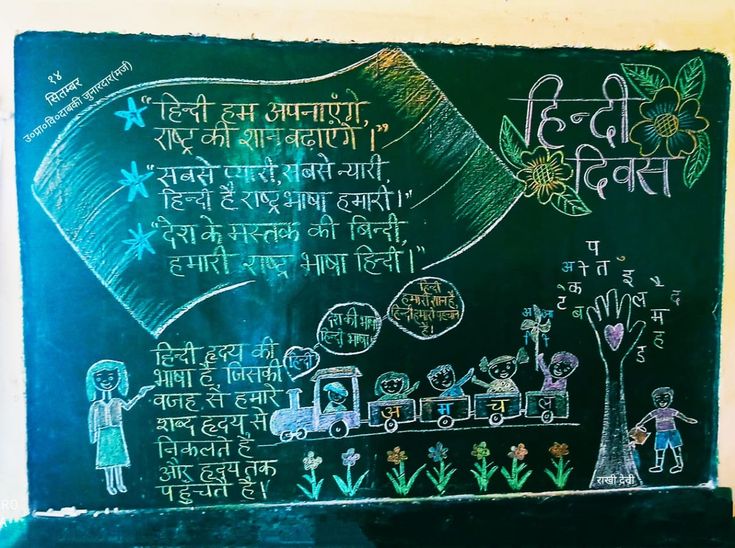 १४
सितम्बर
उ०प्रा०वि०दाबकी जुनारदार(मर्ज)
हिन्दी
दिवस
"हिन्दी हम अपनाएंगे,
राष्ट्र की शान बढ़ाएंगे।"
"सबसे प्यारी, सबसे न्यारी,
हिन्दी है राष्ट्र भाषा हमारी।"
"देश के मस्तक की बिन्दी,
हमारी राष्ट्र भाषा हिन्दी।"
हिन्दी हृदय की
भाषा है, जिसकी
वजह से हमारे
शब्द हृदय से
निकलते हैं
और हृदय तक
पहुंचते हैं।
हिन्दी
देश की भाषा
हिन्दी भाषा
हिन्दी
हमारी शान है
हिन्दी हमारी पहचान
है।
अ म च ल
प
अ त इ
क ल द
ट ब म
ह
ड
राखी देवी